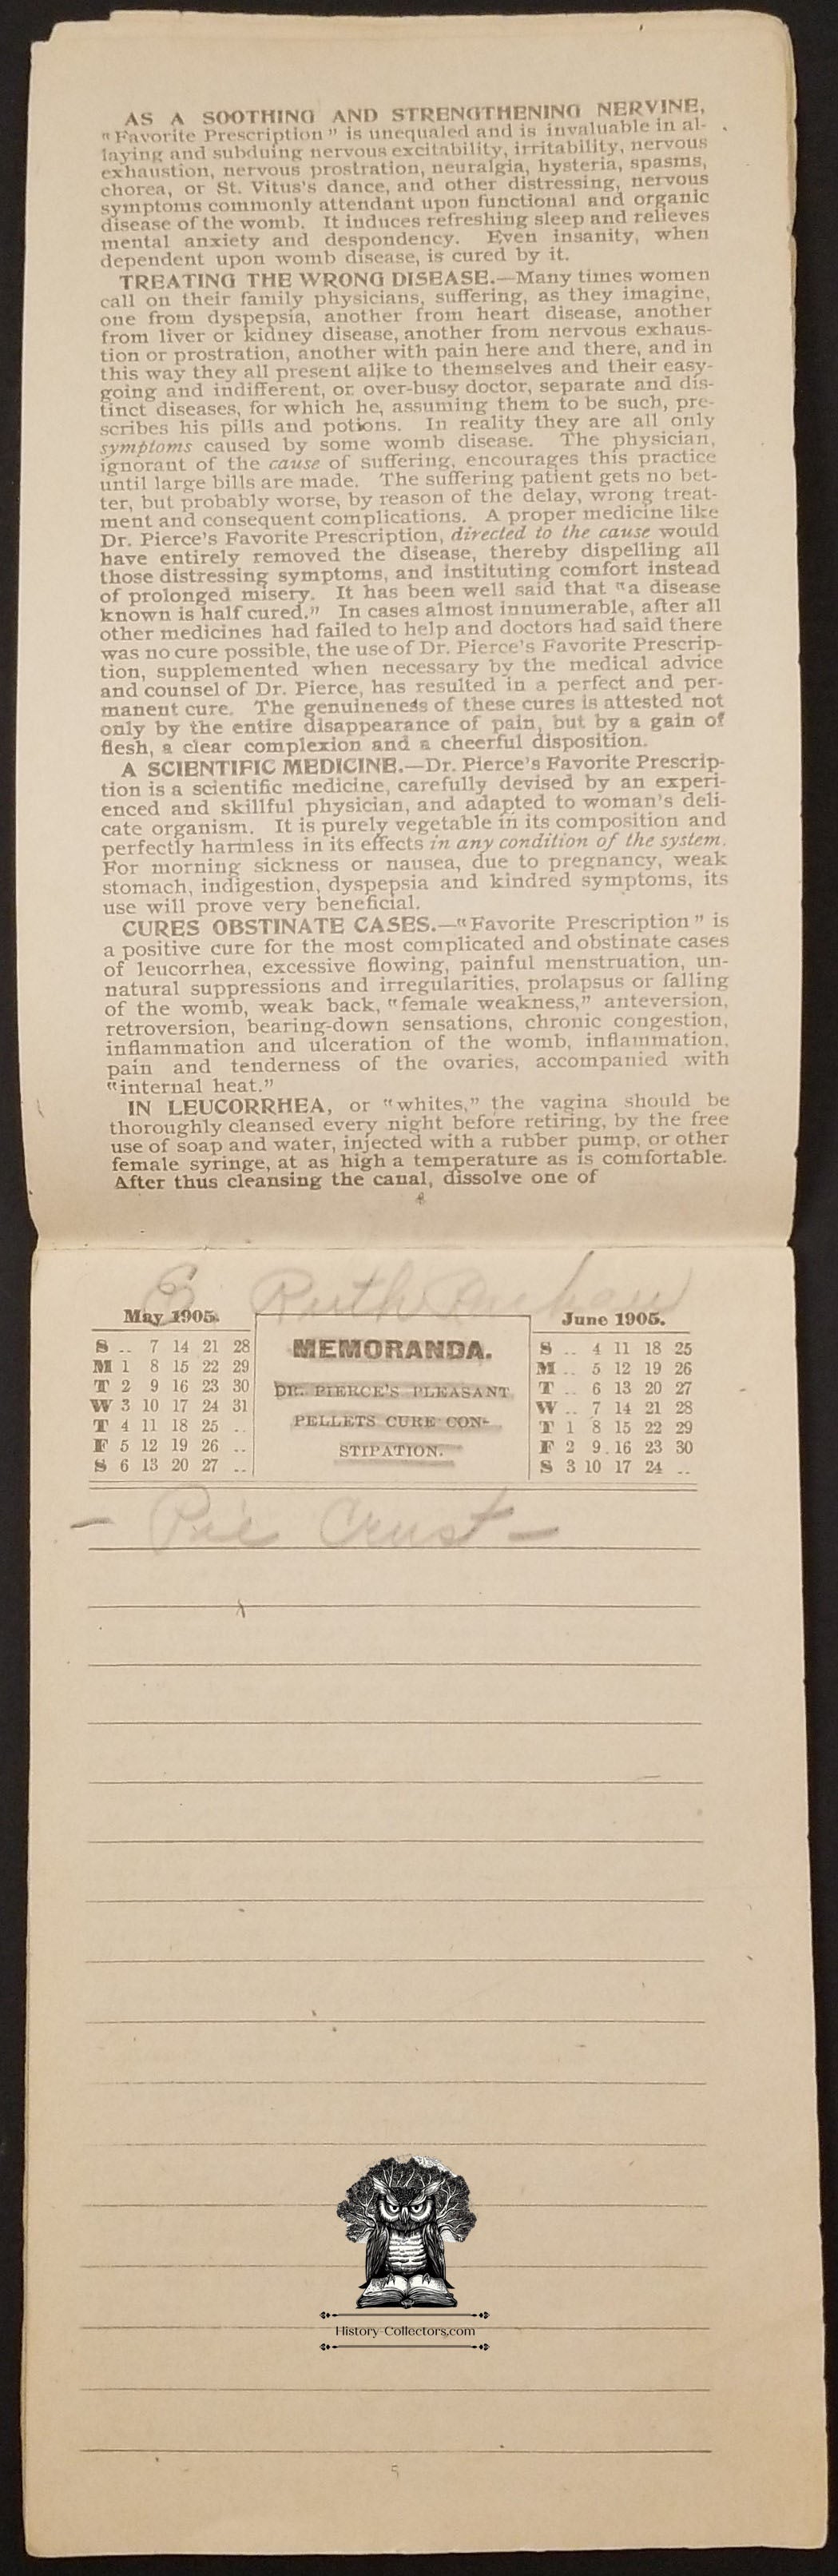 AS A SOOTHING AND STRENGTHENING NERVINE,
"Favorite Prescription" is unequaled and is invaluable in al-
laying and subduing nervous excitability, irritability, nervous
exhaustion, nervous prostration, neuralgia, hysteria, spasms,
chorea, or St. Vitus's dance, and other distressing, nervous
symptoms commonly attendant upon functional and organic
disease of the womb. It induces refreshing sleep and relieves
mental anxiety and despondency. Even insanity, when
dependent upon womb disease, is cured by it.
TREATING THE WRONG DISEASE.—Many times women
call on their family physicians, suffering, as they imagine,
one from dyspepsia, another from heart disease, another
from liver or kidney disease, another from nervous exhaus-
tion or prostration, another with pain here and there, and in
this way they all present alike to themselves and their easy-
going and indifferent, or over-busy doctor, separate and dis-
tinct diseases, for which he, assuming them to be such, pre-
scribes his pills and potions. In reality they are all only
symptoms caused by some womb disease. The physician,
ignorant of the cause of suffering, encourages this practice
until large bills are made. The suffering patient gets no bet-
ter, but probably worse, by reason of the delay, wrong treat-
ment and consequent complications. A proper medicine like
Dr. Pierce's Favorite Prescription, directed to the cause would
have entirely removed the disease, thereby dispelling all
those distressing symptoms, and instituting comfort instead
of prolonged misery. It has been well said that "a disease
known is half cured." In cases almost innumerable, after all
other medicines had failed to help and doctors had said there
was no cure possible, the use of Dr. Pierce's Favorite Prescrip-
tion, supplemented when necessary by the medical advice
and counsel of Dr. Pierce, has resulted in a perfect and per-
manent cure. The genuineness of these cures is attested not
only by the entire disappearance of pain, but by a gain of
flesh, a clear complexion and a cheerful disposition.
A SCIENTIFIC MEDICINE.—Dr. Pierce's Favorite Prescrip-
tion is a scientific medicine, carefully devised by an experi-
enced and skillful physician, and adapted to woman's deli-
cate organism. It is purely vegetable in its composition and
perfectly harmless in its effects in any condition of the system.
For morning sickness or nausea, due to pregnancy, weak
stomach, indigestion, dyspepsia and kindred symptoms, its
use will prove very beneficial.
CURES OBSTINATE CASES.—"Favorite Prescription" is
a positive cure for the most complicated and obstinate cases
of leucorrhea, excessive flowing, painful menstruation, un-
natural suppressions and irregularities, prolapsus or falling
of the womb, weak back, "female weakness," anteversion,
retroversion, bearing-down sensations, chronic congestion,
inflammation and ulceration of the womb, inflammation,
pain and tenderness of the ovaries, accompanied with
"internal heat."
IN LEUCORRHEA, or "whites," the vagina should be
thoroughly cleansed every night before retiring, by the free
use of soap and water, injected with a rubber pump, or other
female syringe, at as high a temperature as is comfortable.
After thus cleansing the canal, dissolve one of
E. Ruth
May 1905.
S .. 7 14 21 28
M 1 8 15 22 29
T 2 9 16 23 30
W 3 10 17 24 31
T 4 11 18 25 ..
F 5 12 19 26 ..
S 6 13 20 27 ..
MEMORANDA.
DR. PIERCE'S PLEASANT
PELLETS CURE CON-
STIPATION.
June 1905.
S .. 4 11 18 25
M .. 5 12 19 26
T .. 6 13 20 27
W .. 7 14 21 28
T 1 8 15 22 29
F 2 9 16 23 30
S 3 10 17 24 ..
- Pie Crust -
History-Collectors.com
5